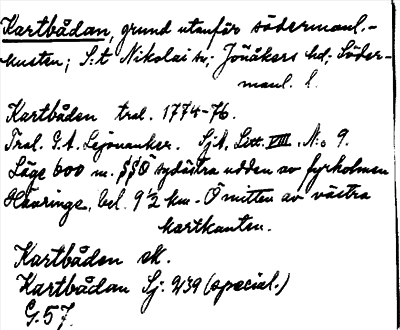 Kartbådan, grund utanför södermanl.-
kusten; S:t Nikolai sn; Jönåkers hd; Söder-
manl. l.
Kartbåden tral. 1774-76.
Tral. G.A. Lejonanker. SjA, Litt. VIII, N:o 9.
Läge 600 m. SSÖ sydöstra udden av fyrholmen
Hävringe, bel. 9½ km. Ö mitten av västra
kartkanten.
Kartbåden ek.
Kartbådan Sj: 239 (special.)
G.57.